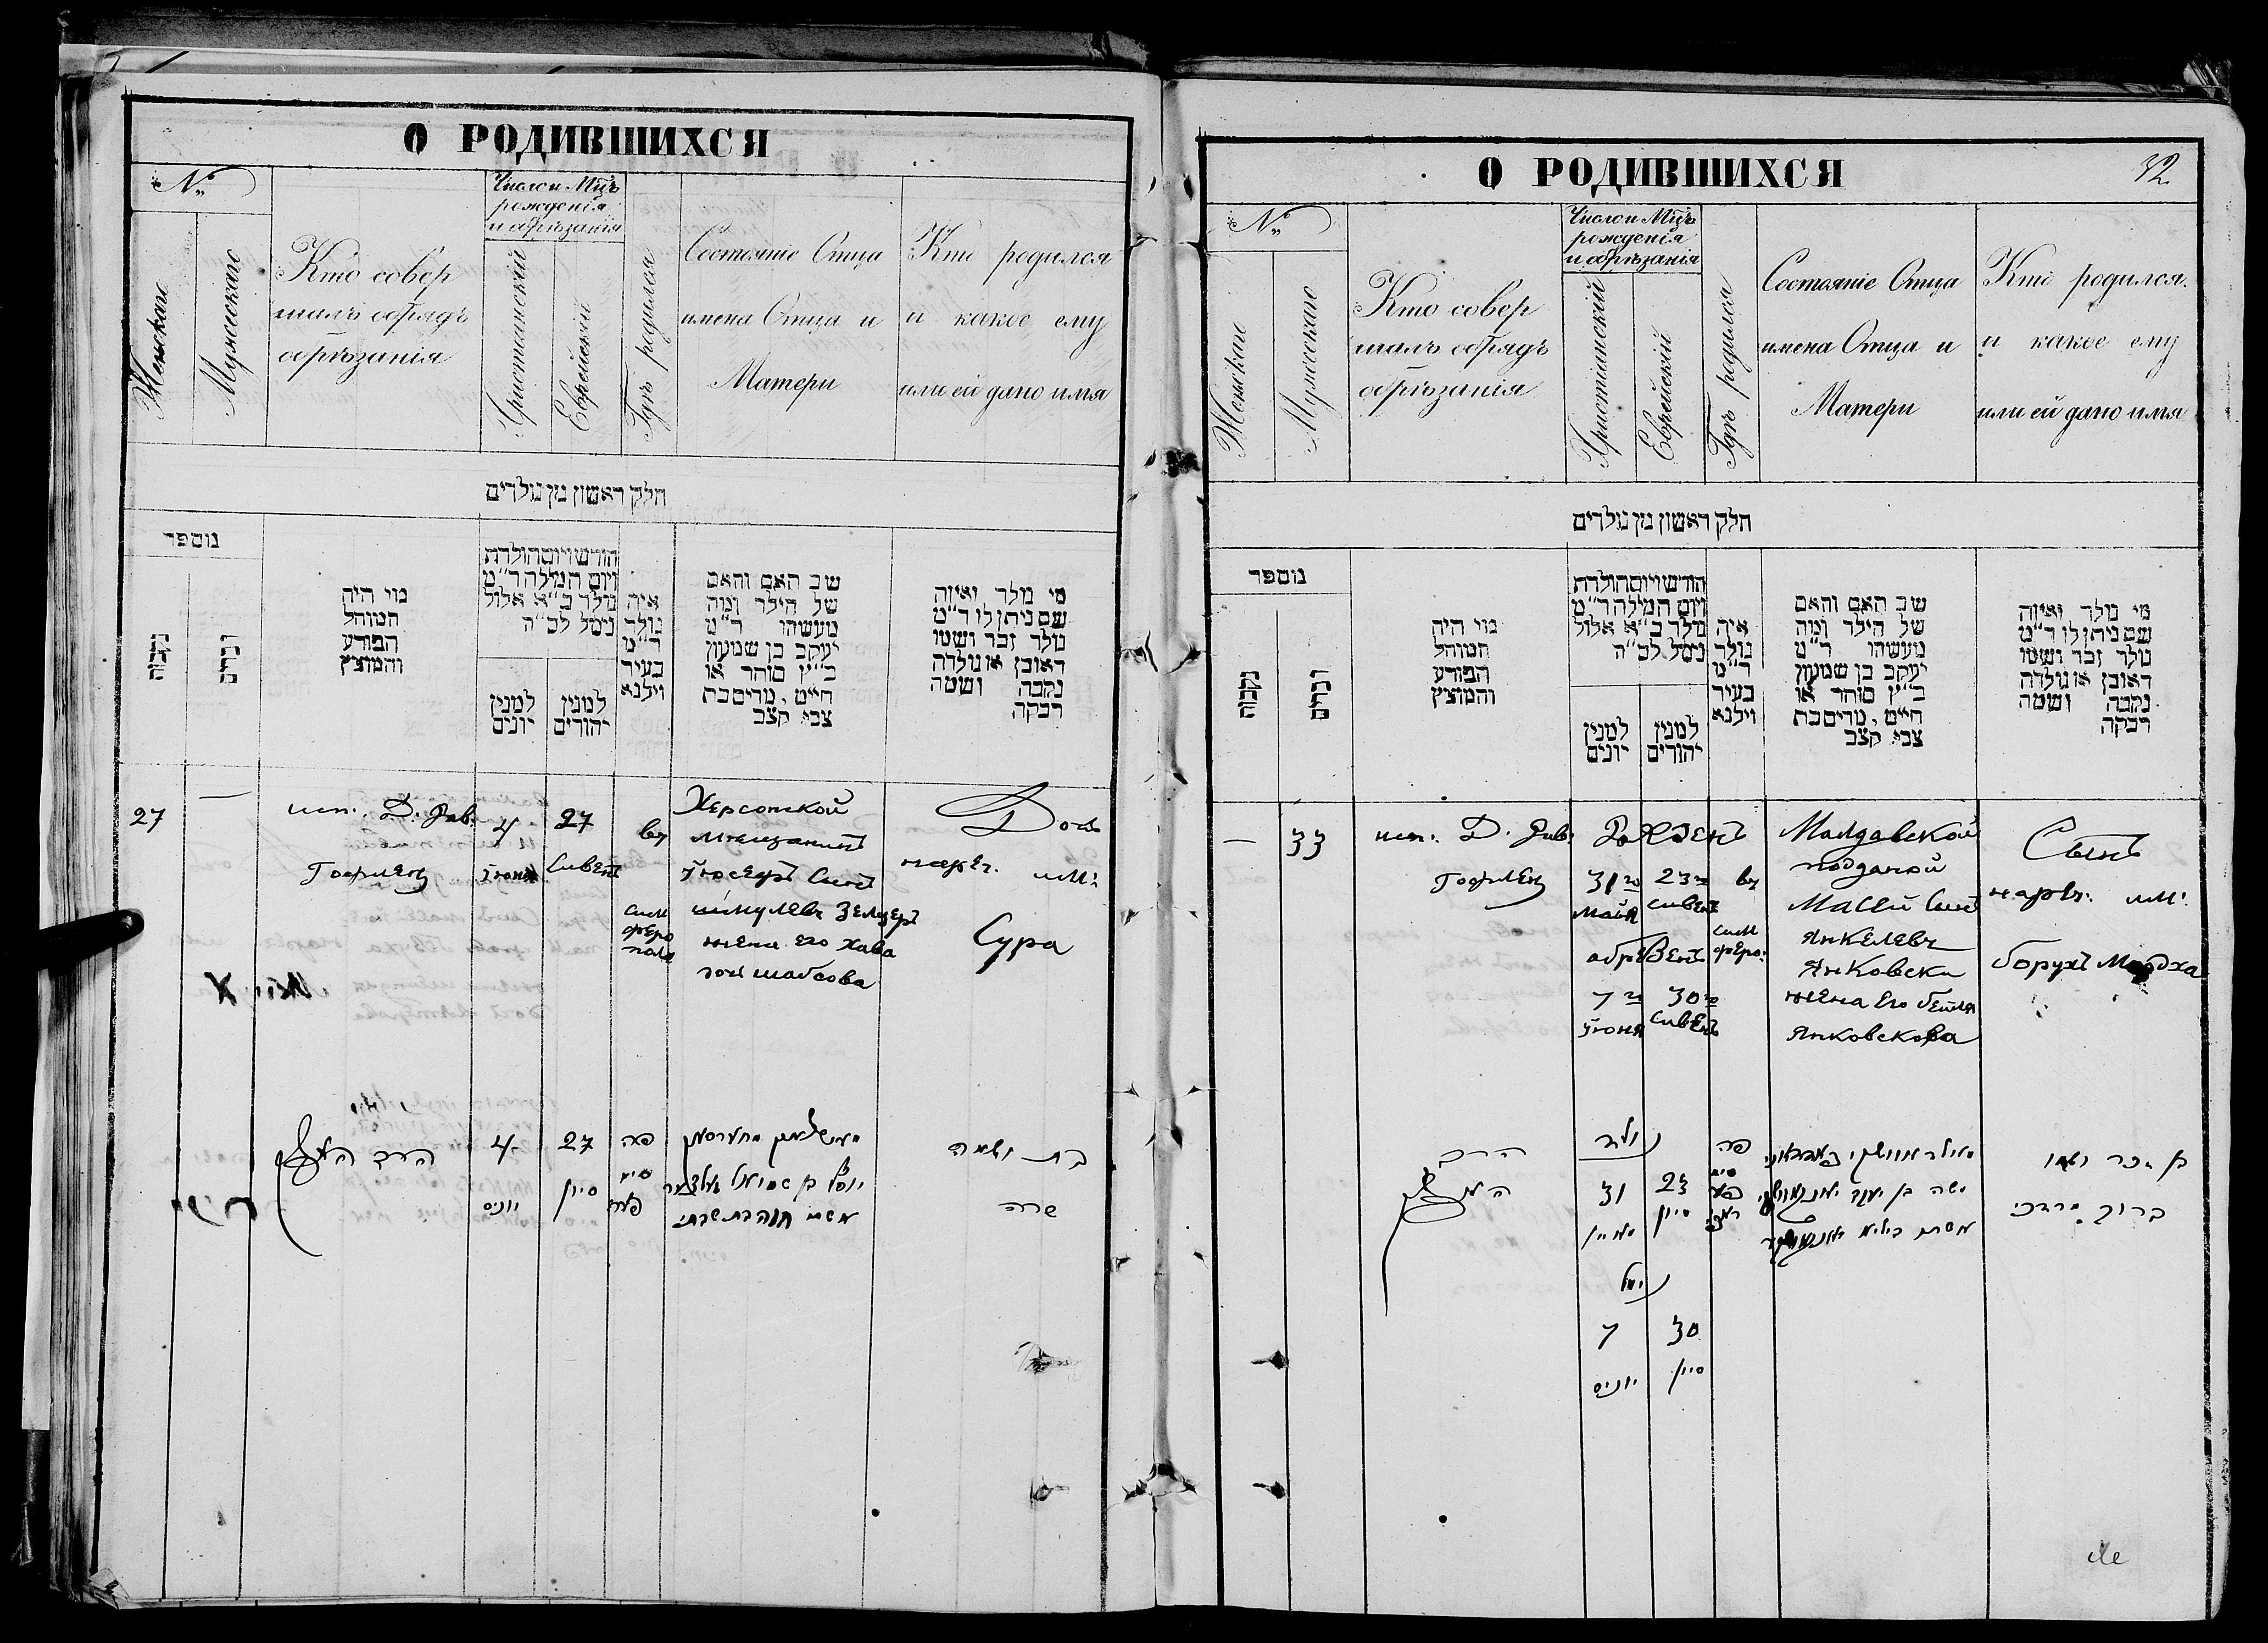 О РОДИВШИХСЯ
№
Женскаго
Мужескаго
Кто совер
шалъ обрядъ
обрѣзанія
Число и Мцъ
рожденія
и обрѣзанія
Христіанскій
Еврейскій
Гдѣ родился
Состояніе Отца
имена Отца и
Матери
Кто родился
и какое ему
или ей дано имя
חלק ראשון מן נולדים
מוספר
נקבות
זכרים
מוי היה
המוהל
הפורע
והמוצץ
חודש ויום הולדת
ויום המילה ר״מ
נולד כ״א אלול
נימל לכ״ה
למנין
יונים
למנין
יהודים
איה
נולד
ר״מ
בעיר
וילנא
שב האם והאם
של הילד ומה
מעשהו ר״מ
יעקב בן שמעון
כ״ץ סוחר או
חייט, מרים בת
צבי קצב
מי נולד ואיזה
שם ניתן לו ר״מ
נולד זכר ושמו
ראובן או נולדה
נקבה ושמה
רבקה
27
—
исп. Д. Рав.
Гофменъ
4
Іюня
27
Сивенъ
въ
Сим
феро
поля
Херсонской
мещанинъ
Іосефъ Синъ
шмулевъ Зелцеръ
жена его Хава
доч шабсова
Дочь
нареч. им:
Сура
4
יוניס
27
סיון
פה
סים
בת ושמה
שרה
О РОДИВШИХСЯ
32
№
Женскаго
Мужескаго
Кто совер
шалъ обрядъ
обрѣзанія
Число и Мцъ
рожденія
и обрѣзанія
Христіанскій
Еврейскій
Гдѣ родился
Состояніе Отца
имена Отца и
Матери
Кто родился.
и какое ему
или ей дано имя
חלק ראשון מן נולדים
מוספר
נקבות
זכרים
מוי היה
המוהל
הפורע
והמוצץ
חודש ויום הולדת
ויום המילה ר״מ
נולד כ״א אלול
נימל לכ״ה
למנין
יונים
למנין
יהודים
איה
נולד
ר״מ
בעיר
וילנא
שב האם והאם
של הילד ומה
מעשהו ר״מ
יעקב בן שמעון
כ״ץ סוחר או
חייט, מרים בת
צבי קצב
מי נולד ואיזה
שם ניתן לו ר״מ
נולד זכר ושמו
ראובן או נולדה
נקבה ושמה
רבקה
—
33
исп. Д. Рав:
Гофменъ
Рожденъ
31го
Майя
23го
Сивенъ
обрѣзенъ
7го
Іюня
30го
Сивенъ
въ
Сим
феро:
Малдавской
подданой
Масей Синъ
Янкелевъ
Янковски
жена его бейля
Янковскова
Сынъ
нареч: им:
борухъ Мордха
נולד
31
מאיי
23
סיון
נימל
7
יוניס
30
סיון
פה
סים
בן זכר ושמו
ברוך מרדכי